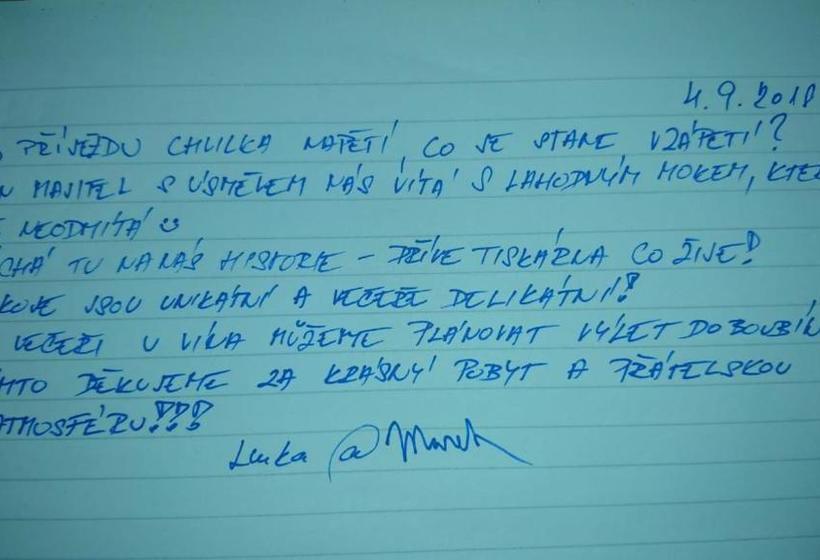 4.9.2018
PŘÍJEZDU CHVILKA NAPĚTÍ, CO SE STANE VZÁPĚTÍ?
MAJITEL S ÚSMĚVEM NÁS VÍTÁ S LAHODNÝM MOKEM, KTE
NEODMÍTÁ ☺
CHÁ TU NA NÁS HISTORIE - DŘÍVE TISKÁRNA CO ŽIJE!
KOJE JSOU UNIKÁTNÍ A VEČEŘE DELIKÁTNÍ!
VEČEŘI U VÍNA MŮŽEME PLÁNOVAT VÝLET DO BOUBÍN
ÍMTO DĚKUJEME ZA KRÁSNÝ POBYT A PŘÁTELSKOU
ATMOSFÉRU!!!
Lenka @ Marek